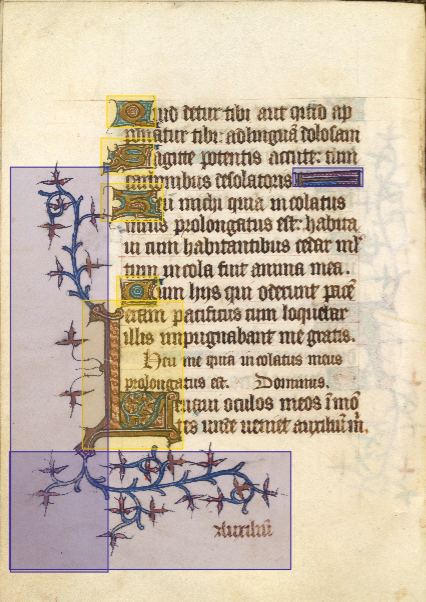 Quid detur tibi aut quid ap
ponatur tibi: ad linguã dolosam
Sagitte potentis accute: cum
carbonibus desolatoriis
Heu michi quia incolatus
meus prolongatus est: habita
ui cum habitantibus cedar ml'
tum incola fuit anima mea.
Cum hiis qui oderunt pacē
eram pacificus cum loquebar
illis impugnabant me gratis.
Heu me quia incolatus meus
prolongatus est. Dominus.
Leuaui oculos meos ī mō
tis unde ueniet auxiliũ m.
Auxiliũ